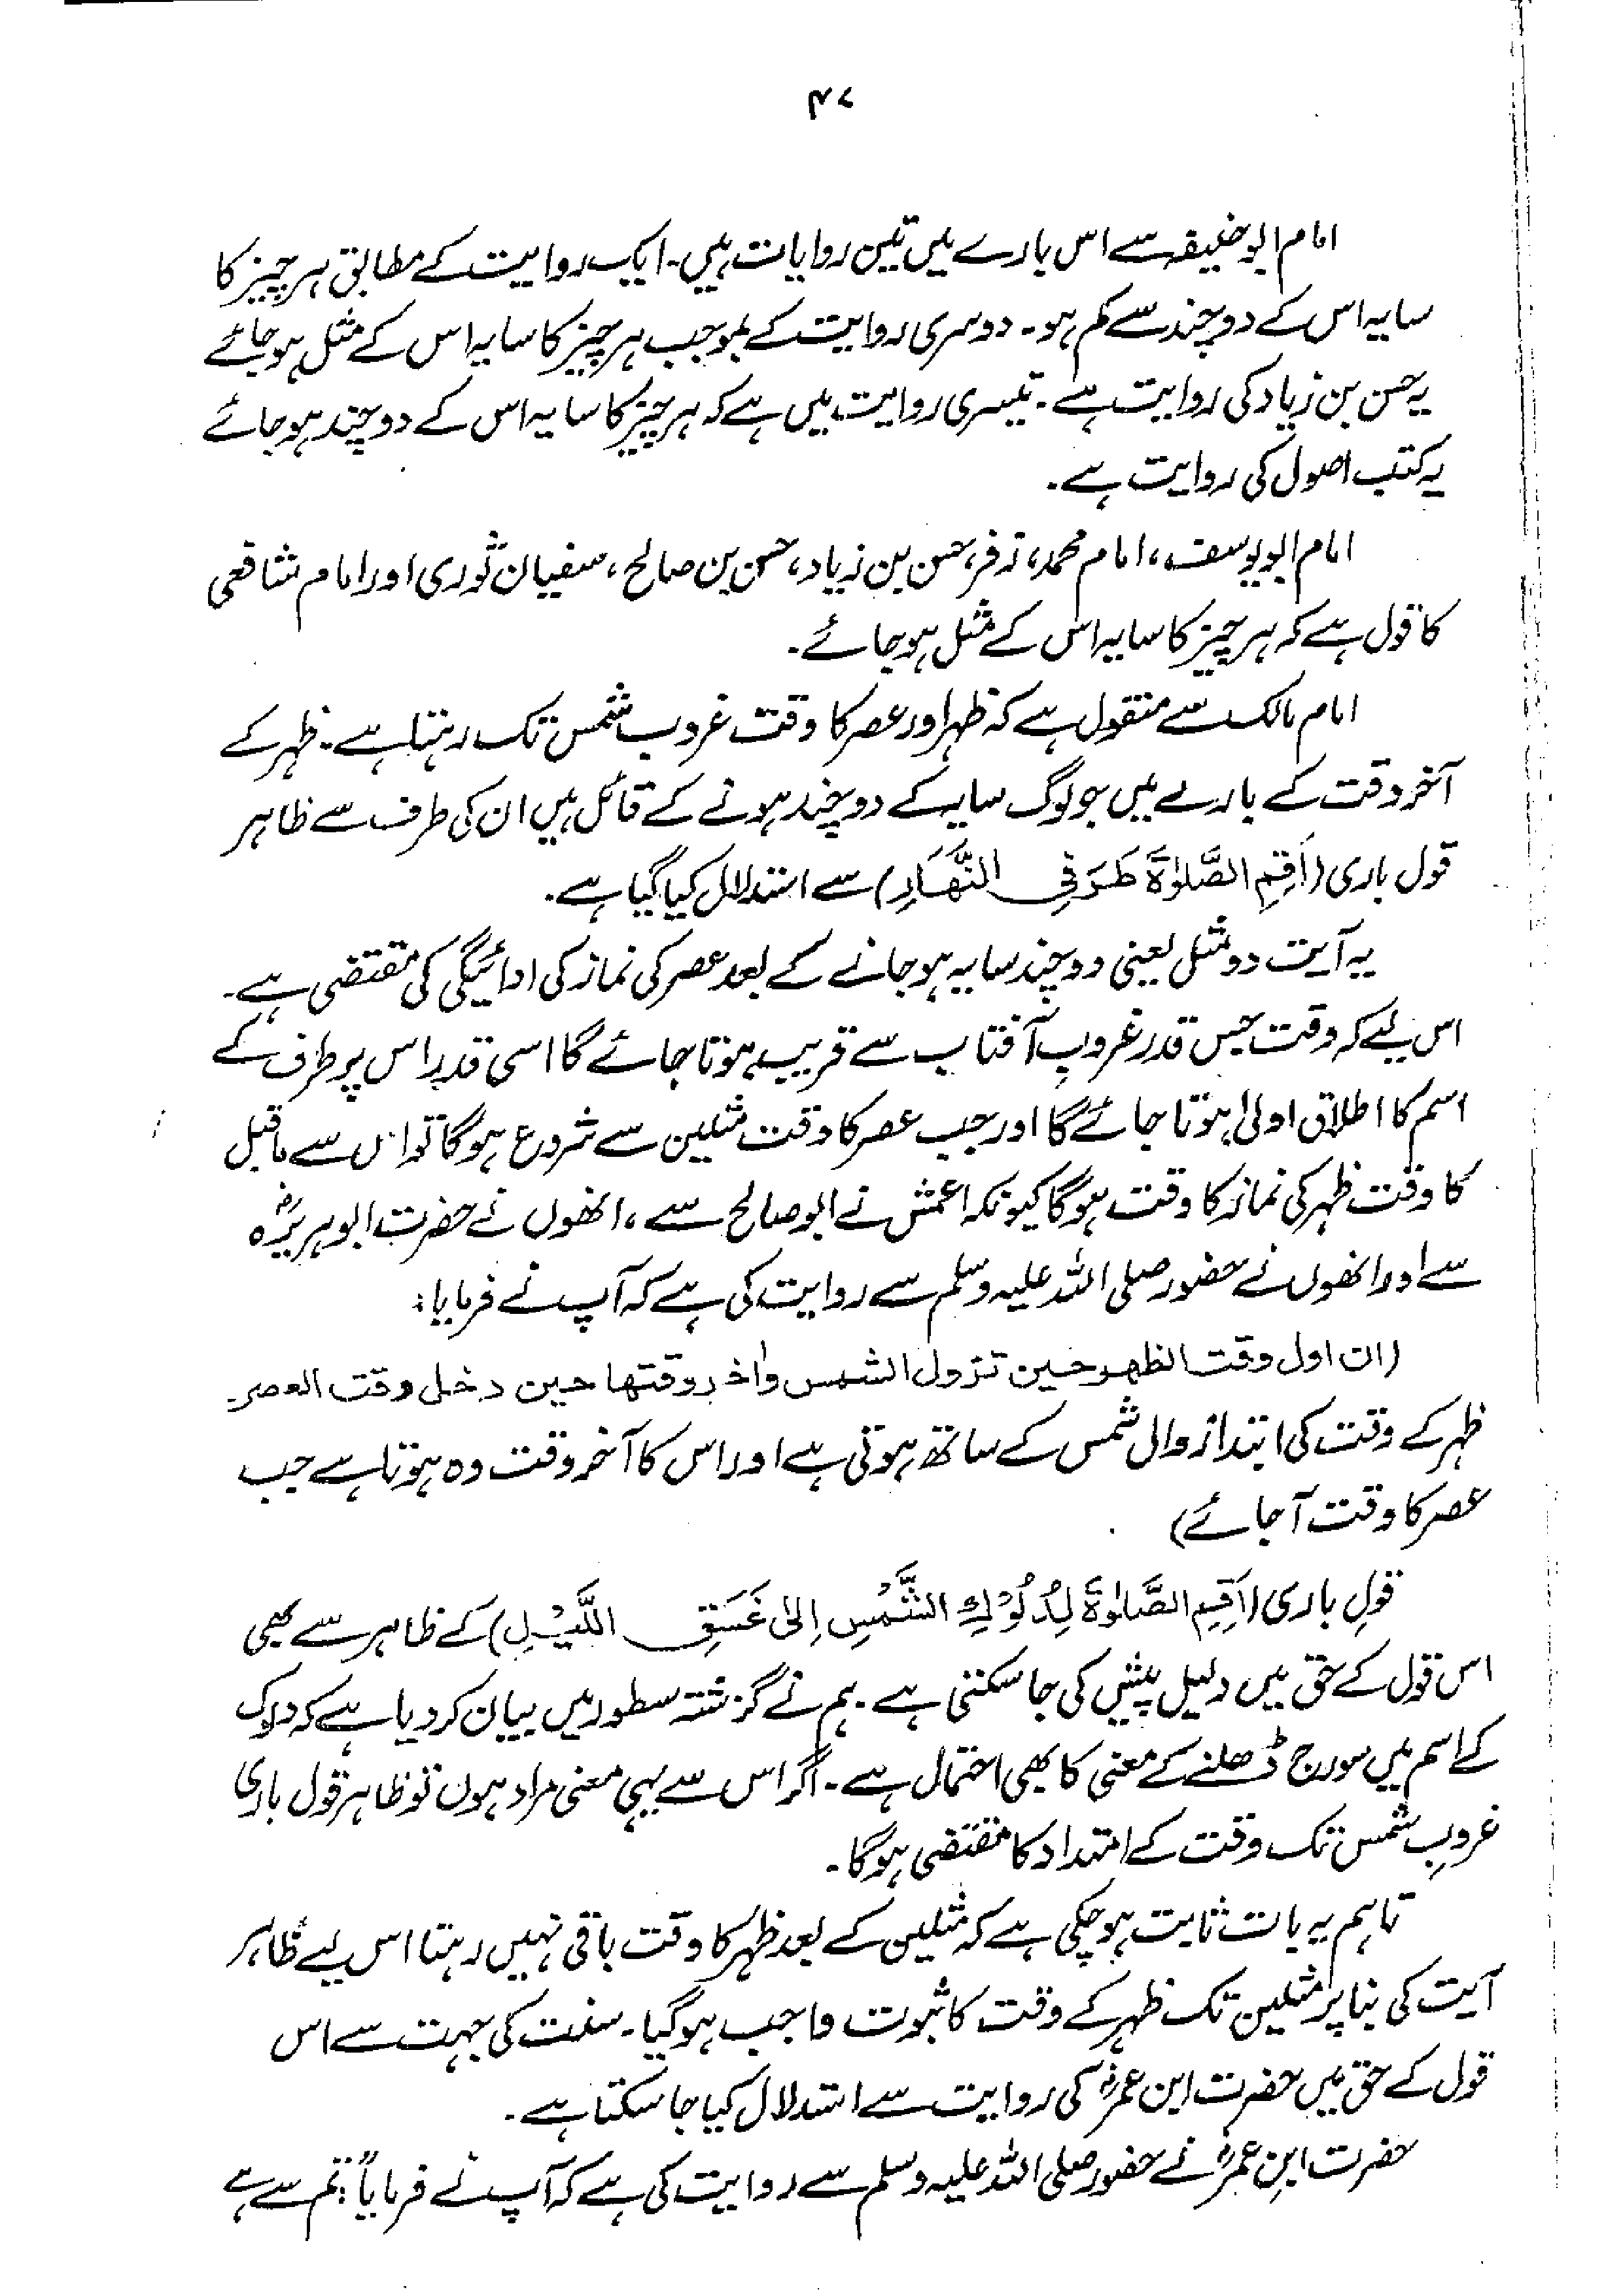 ۴۷
امام ابوحنیفہ سے اس بارے میں تین روایات ہیں۔ ایک روایت کے مطابق ہر چیز کا
سایہ اس کے دو چند سے کم ہو۔ دوسری روایت کے بموجب ہر چیز کا سایہ اس کے مثل ہو جائے
یہ حسن بن زیاد کی روایت ہے۔ تیسری روایت میں ہے کہ ہر چیز کا سایہ اس کے دو چند ہو جائے
یہ کتب اصول کی روایت ہے۔
امام ابو یوسف، امام محمد، زفر، حسن بن زیاد، حسن بن صالح، سفیان ثوری اور امام شافعی
کا قول ہے کہ ہر چیز کا سایہ اس کے مثل ہو جائے۔
امام مالک سے منقول ہے کہ ظہر اور عصر کا وقت غروب شمس تک رہتا ہے۔ ظہر کے
آخر وقت کے بارے میں جو لوگ سایہ کے دو چند ہونے کے قائل ہیں ان کی طرف سے ظاہر
قول باری (اَقِمِ الصَّلوٰةَ طَرَفَیِ النَّهَارِ) سے استدلال کیا گیا ہے۔
یہ آیت دو مثل یعنی دو چند سایہ ہو جانے کے بعد عصر کی نماز کی ادائیگی کی مقتضی ہے۔
اس لیے کہ وقت جس قدر غروبِ آفتاب سے قریب ہوتا جائے گا اسی قدر اس پر طرف کے
اسم کا اطلاق اولیٰ ہوتا جائے گا اور جب عصر کا وقت مثلین سے شروع ہوگا تو اس سے ماقبل
کا وقت ظہر کی نماز کا وقت ہوگا کیونکہ اعمش نے ابو صالح سے، انھوں نے حضرت ابو ہریرہؓ
سے اور انھوں نے حضور صلی اللہ علیہ وسلم سے روایت کی ہے کہ آپ نے فرمایا:
(ان اول وقت الظهر حين تزول الشمس واٰخر وقتها حين دخل وقت العصر۔
ظہر کے وقت کی ابتدا زوال شمس کے ساتھ ہوتی ہے اور اس کا آخر وقت وہ ہوتا ہے جب
عصر کا وقت آ جائے)
قولِ باری (اَقِمِ الصَّلوٰةَ لِدُلُوْكِ الشَّمْسِ اِلٰى غَسَقِ اللَّيْلِ) کے ظاہر سے بھی
اس قول کے حق میں دلیل پیش کی جا سکتی ہے۔ ہم نے گزشتہ سطور میں بیان کر دیا ہے کہ دلوک
کے اسم میں سورج ڈھلنے کے معنی کا بھی احتمال ہے۔ اگر اس سے یہی معنی مراد ہوں تو ظاہر قول باری
غروبِ شمس تک وقت کے امتداد کا مقتضی ہوگا۔
تاہم یہ بات ثابت ہو چکی ہے کہ مثلین کے بعد ظہر کا وقت باقی نہیں رہتا اس لیے ظاہر
آیت کی بنا پر مثلین تک ظہر کے وقت کا ثبوت واجب ہوگیا۔ سنت کی جہت سے اس
قول کے حق میں حضرت ابن عمرؓ کی روایت سے استدلال کیا جا سکتا ہے۔
حضرت ابنِ عمرؓ نے حضور صلی اللہ علیہ وسلم سے روایت کی ہے کہ آپ نے فرمایا: "تم سے پہلے